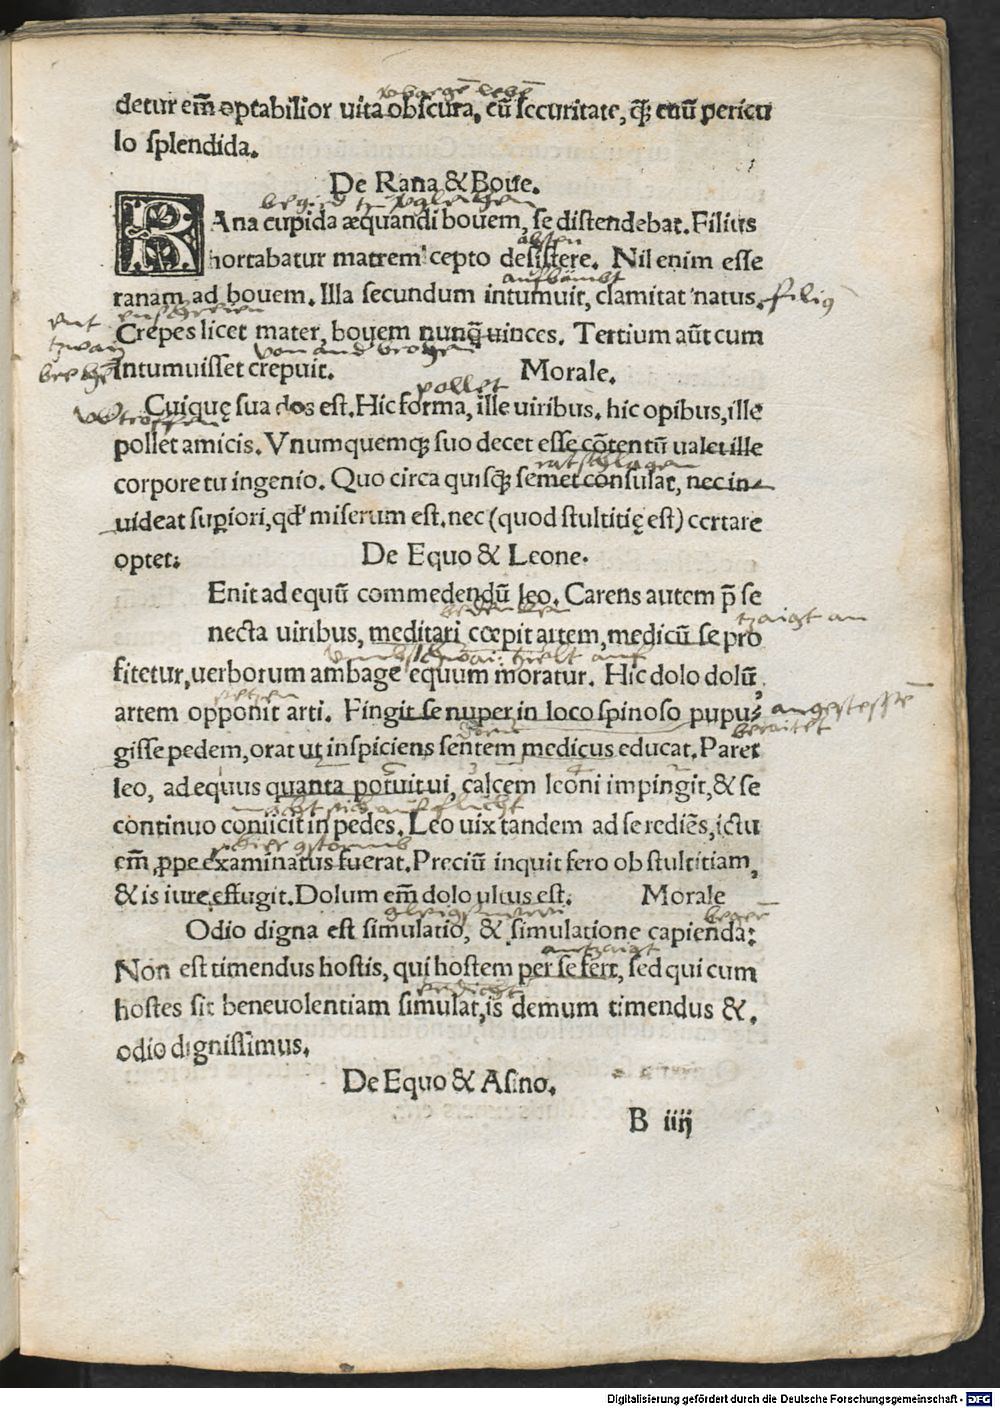 detur em̃ optabilior uita obscura, cũ securitate, q̃ꝫ cuũ pericu
lo splendida.
De Rana & Boue.
RAna cupida æquandi bouem, se distendebat. Filius
hortabatur matrem cepto desistere. Nil enim esse
ranam ad bouem. Illa secundum intumuit, clamitat natus.
filiꝰ
Crepes licet mater, bouem nunq̃ uinces. Tertium aũt cum
intumuisset crepuit. Morale.
pollet
Cuiquę sua dos est. Hic forma, ille uiribus. hic opibus, ille
pollet amicis. Vnumquemqꝫ suo decet esse cõtentũ ualet ille
ratschlagen
corpore tu ingenio. Quo circa quisq̃ꝫ semet consulat, nec in-
uideat suꝑiori, qd' miserum est. nec (quod stultitię est) certare
optet: De Equo & Leone.
Enit ad equũ commedendũ leo. Carens autem p̃ se
tzaigt an
necta uiribus, meditari cœpit artem, medicũ se pro
fitetur, uerborum ambage equum moratur. Hic dolo dolũ,
artem opponit arti. Fingit se nuper in loco spinoso pupu-
gisse pedem, orat ut inspiciens sentem medicus educat. Paret
leo, ad equus quanta potuit ui, calcem leoni impingit, & se
macht sich auf flucht
continuo coniicit in pedes. Leo uix tandem ad se rediẽs, ictu
em̃ ꝓpe examinatus fuerat. Preciũ inquit fero ob stultitiam,
& is iure effugit. Dolum em̃ dolo ultus est. Morale
Odio digna est simulatio, & simulatione capienda:
antzaigt
Non est timendus hostis, qui hostem per se fert, sed qui cum
hostes sit beneuolentiam simulat, is demum timendus &
odio dignissimus.
De Equo & Asino.
B iiij
Digitalisierung gefördert durch die Deutsche Forschungsgemeinschaft - DFG